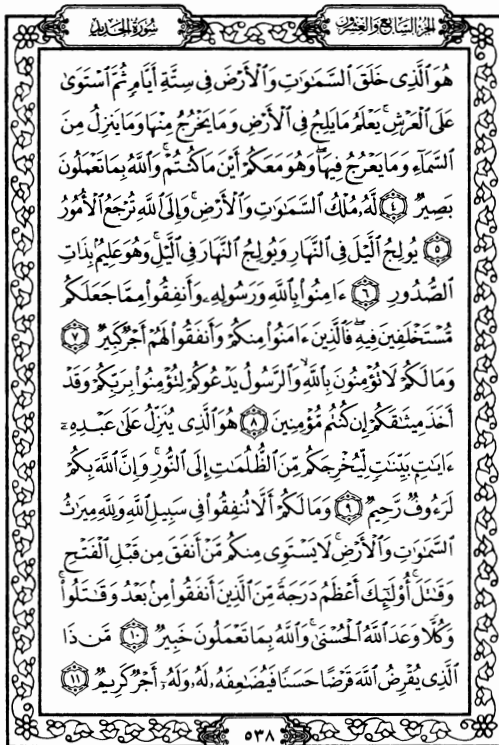 سُورَةُ الحَدِيدِ
الجُزءُ السَّابِعُ وَالعِشْرُونَ
هُوَ الَّذِى خَلَقَ السَّمَٰوَٰتِ وَالْأَرْضَ فِى سِتَّةِ أَيَّامٍ ثُمَّ اسْتَوَىٰ
عَلَى الْعَرْشِ ۚ يَعْلَمُ مَا يَلِجُ فِى الْأَرْضِ وَمَا يَخْرُجُ مِنْهَا وَمَا يَنزِلُ مِنَ
السَّمَآءِ وَمَا يَعْرُجُ فِيهَا ۖ وَهُوَ مَعَكُمْ أَيْنَ مَا كُنتُمْ ۚ وَاللَّهُ بِمَا تَعْمَلُونَ
بَصِيرٌ ﴿٤﴾ لَّهُۥ مُلْكُ السَّمَٰوَٰتِ وَالْأَرْضِ ۚ وَإِلَى اللَّهِ تُرْجَعُ الْأُمُورُ
﴿٥﴾ يُولِجُ الَّيْلَ فِى النَّهَارِ وَيُولِجُ النَّهَارَ فِى الَّيْلِ ۚ وَهُوَ عَلِيمٌۢ بِذَاتِ
الصُّدُورِ ﴿٦﴾ ءَامِنُوا۟ بِاللَّهِ وَرَسُولِهِۦ وَأَنفِقُوا۟ مِمَّا جَعَلَكُم
مُّسْتَخْلَفِينَ فِيهِ ۖ فَالَّذِينَ ءَامَنُوا۟ مِنكُمْ وَأَنفَقُوا۟ لَهُمْ أَجْرٌ كَبِيرٌ ﴿٧﴾
وَمَا لَكُمْ لَا تُؤْمِنُونَ بِاللَّهِ ۙ وَالرَّسُولُ يَدْعُوكُمْ لِتُؤْمِنُوا۟ بِرَبِّكُمْ وَقَدْ
أَخَذَ مِيثَٰقَكُمْ إِن كُنتُم مُّؤْمِنِينَ ﴿٨﴾ هُوَ الَّذِى يُنَزِّلُ عَلَىٰ عَبْدِهِۦٓ
ءَايَٰتٍۭ بَيِّنَٰتٍ لِّيُخْرِجَكُم مِّنَ الظُّلُمَٰتِ إِلَى النُّورِ ۚ وَإِنَّ اللَّهَ بِكُمْ
لَرَءُوفٌ رَّحِيمٌ ﴿٩﴾ وَمَا لَكُمْ أَلَّا تُنفِقُوا۟ فِى سَبِيلِ اللَّهِ وَلِلَّهِ مِيرَٰثُ
السَّمَٰوَٰتِ وَالْأَرْضِ ۚ لَا يَسْتَوِى مِنكُم مَّنْ أَنفَقَ مِن قَبْلِ الْفَتْحِ
وَقَٰتَلَ ۚ أُو۟لَٰٓئِكَ أَعْظَمُ دَرَجَةً مِّنَ الَّذِينَ أَنفَقُوا۟ مِنۢ بَعْدُ وَقَٰتَلُوا۟ ۚ
وَكُلًّا وَعَدَ اللَّهُ الْحُسْنَىٰ ۚ وَاللَّهُ بِمَا تَعْمَلُونَ خَبِيرٌ ﴿١٠﴾ مَّن ذَا
الَّذِى يُقْرِضُ اللَّهَ قَرْضًا حَسَنًا فَيُضَٰعِفَهُۥ لَهُۥ وَلَهُۥٓ أَجْرٌ كَرِيمٌ ﴿١١﴾
٥٣٨